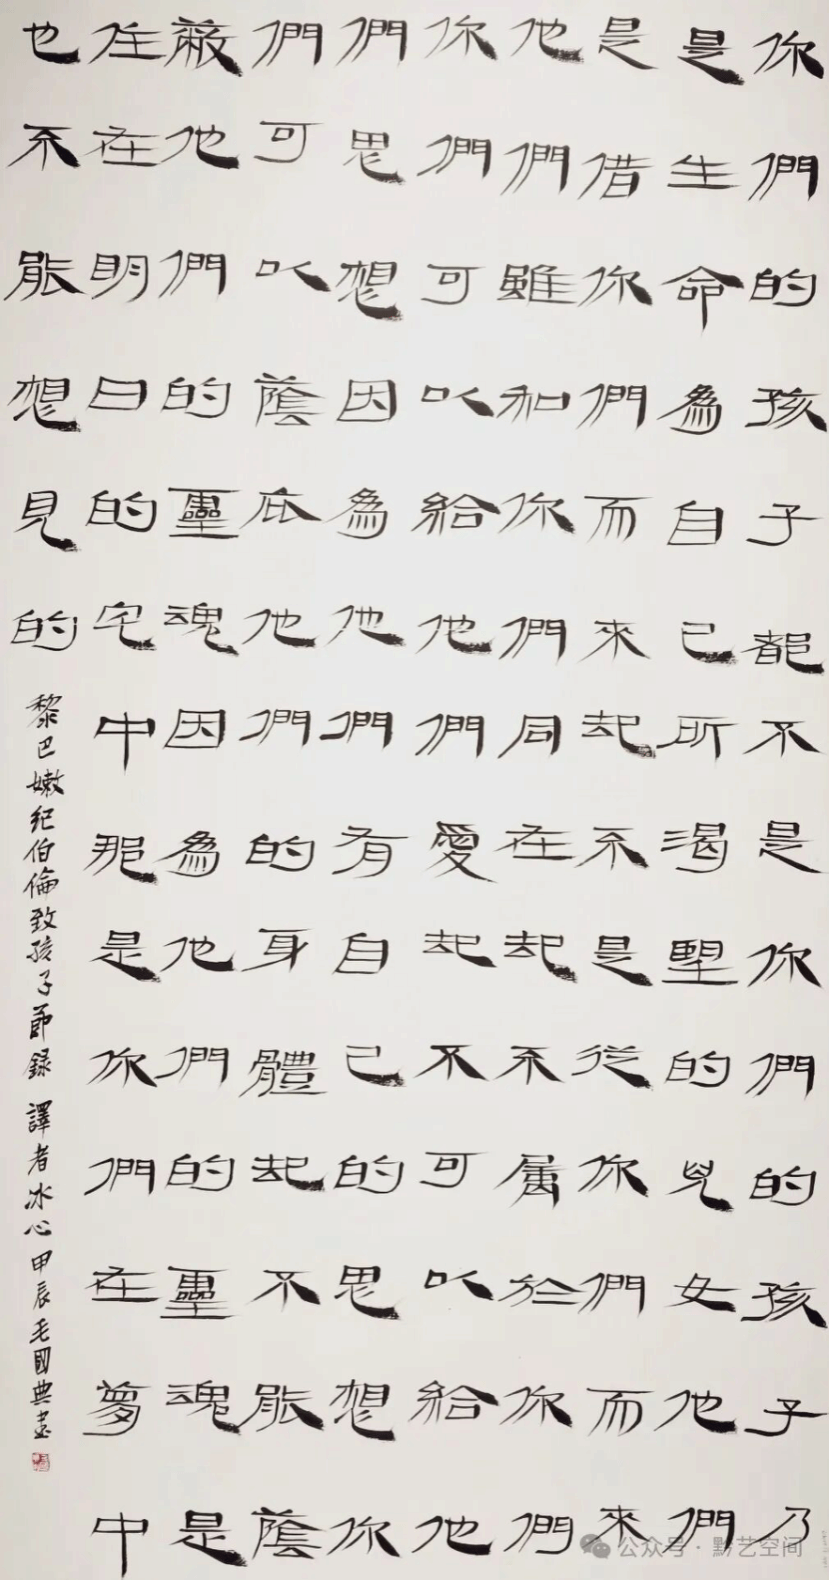 你們的孩子都不是你們的孩子乃
是生命為自己所渴望的兒女他們
是借你們而來却不是從你們而來
他們雖和你們同在却不属於你們
你們可以給他們愛却不可以給他
們思想因為他們有自己的思想你
們可以蔭庇他們的身體却不能蔭
蔽他們的靈魂因為他們的靈魂是
住在明日的宅中那是你們在夢中
也不能想見的
黎巴嫩紀伯倫致孩子節録 譯者冰心 甲辰毛國典書
公众号·默艺空间